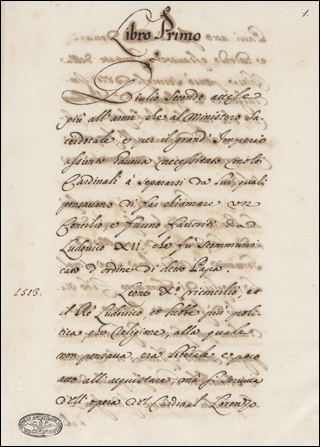 1.
Libro Primo
Giulio Secondo accese
più all'armi che al Ministero Sa
cerdotale, e per il grand' Imperio
assunto haveva necessitato molti
Cardinali à separarsi da Lui, quali
pensavano di far chiamare un
Concilio, e furono favoriti da
Ludovico XII. che fù scommuni
cato d'ordine di detto Papa.
1513. Leone X.º riconciliò, et
il Rè Ludovico et hebbe più poli
tica che Religione, alla quale
non pensava, era liberale, e poco
atto all'acquistare, ma si serviva
dell'opera del Cardinal Lorenzo